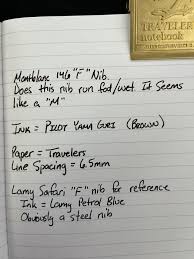 TRAVELER'S
notebook
Montblanc 146 "F" Nib.
Does this nib run fat/wet. It Seems
like a "M"
Ink = Pilot Yama Guri (Brown)
Paper = Travelers
Line Spacing = 6.5mm
Lamy Safari "F" nib for reference
Ink = Lamy Petrol Blue
Obviously a steel nib